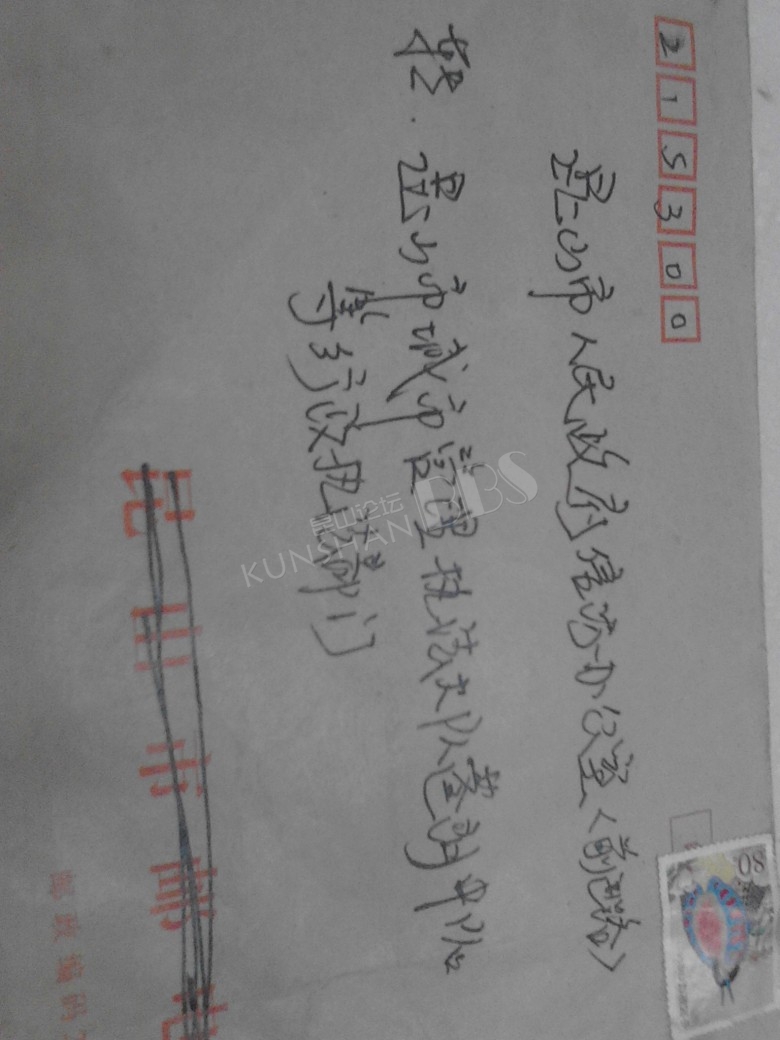 215300
昆山市人民政府信访办公室（前进路）
转．昆山市城市管理执法大队查处中心
等行政执法部门
昆山论坛
KUNSHAN BBS
昆山市邮电
邮政编码
80